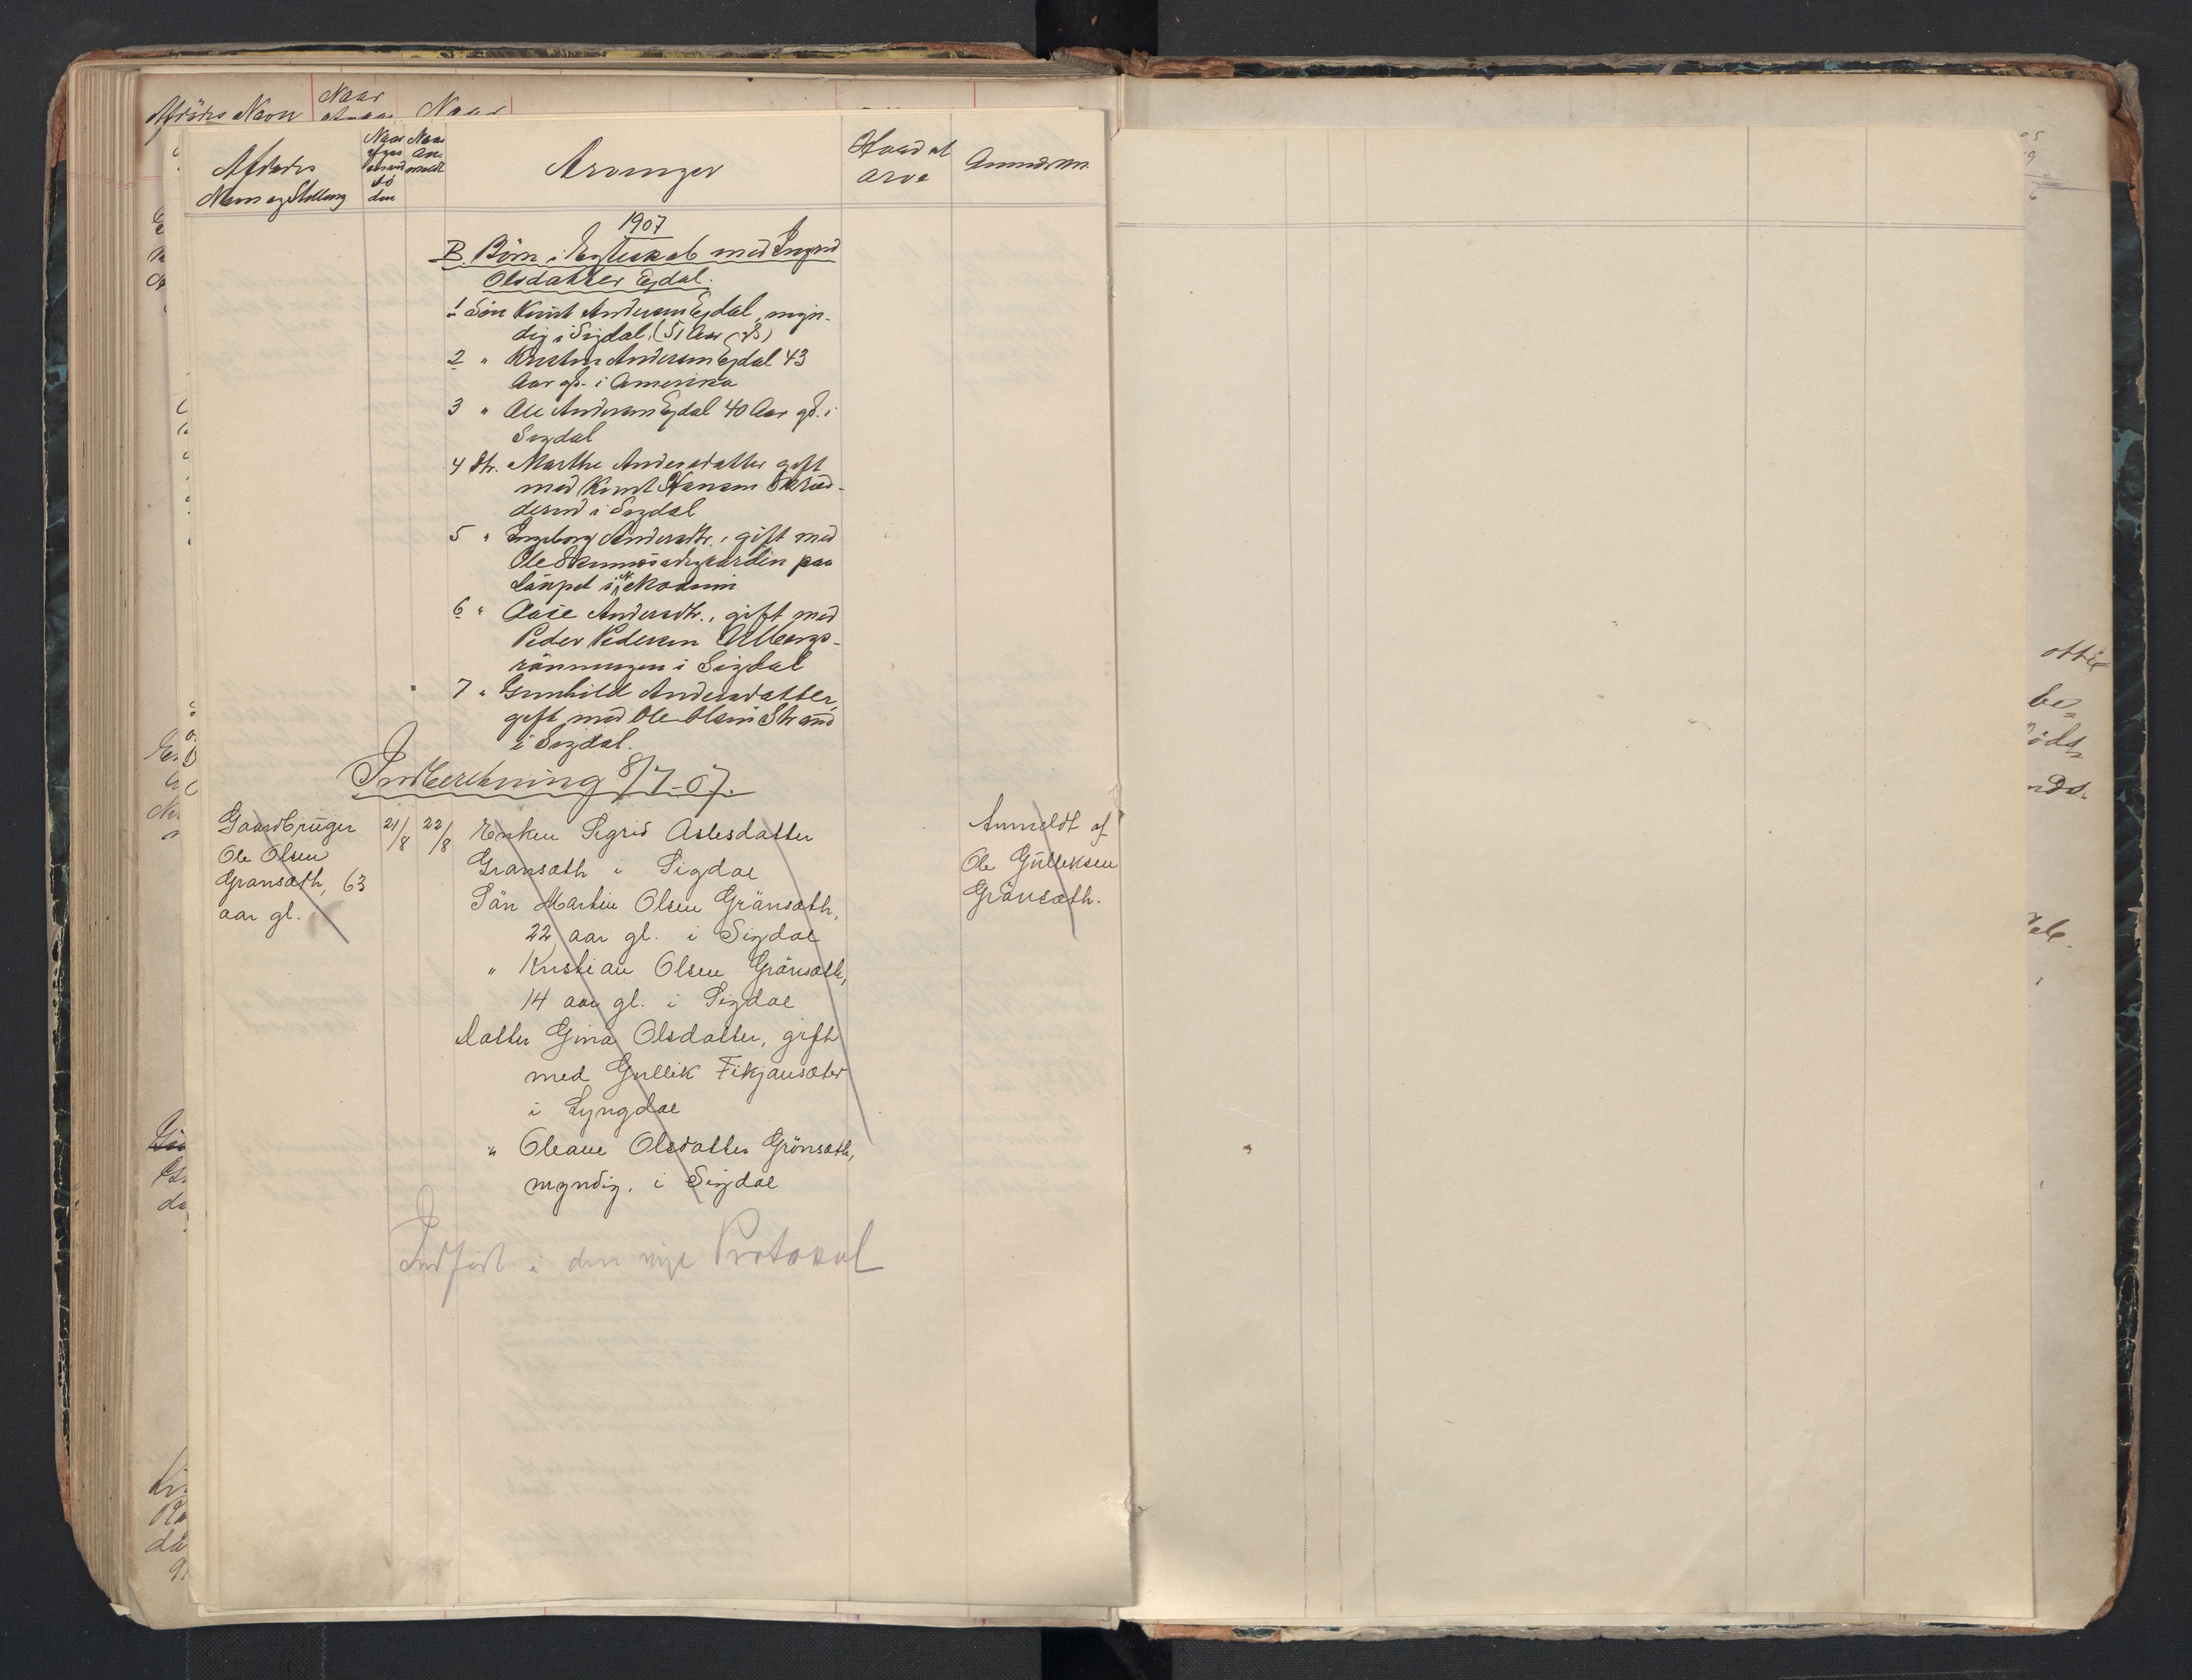 Afdødes
Navn og Stilling
Naar
Naar
An-
meldt
dö
den
Arvinger
Hvad at
arve
Anmærkn.
1907
B. Börn i Egteskab med Ingrid
Olsdatter Egdal.
1 Sön Knut Andersen Egdal, myn-
dig i Sigdal, (51 Aar gl.)
2 " Kristen Andersen Egdal 43
Aar gl. i Amerika
3 " Ole Andersen Egdal 40 Aar gl. i
Sigdal
4 Dtr. Marthe Andersdatter gift
med Knut Hansen
i Sigdal
5 " Ingeborg Andersdtr., gift med
Ole paa
i N. Modum
6 " Aase Andersdtr., gift med
Peder Pedersen
i Sigdal
7 " Gunhild Andersdatter,
gift med Ole Olsen Strand
i Sigdal.
Indberetning 8/7-07.
Gaardbruger
Ole Olsen
Grønsæth, 63
aar gl.
21/8
22/8
Enken Sigrid Aslesdatter
Grønsæth i Sigdal
Sön Martin Olsen Grönsæth,
22 aar gl. i Sigdal
" Kristian Olsen Grönsæth,
14 aar gl. i Sigdal
Datter Gina Olsdatter, gift
med Gullik Fikjansæter
i Lyngdal
" Oleane Olsdatter Grönsæth,
myndig, i Sigdal
Anmeldt af
Ole Gulleksen
Grönsæth.
Indfört i den nye Protokol
Afdödes Navn
Naar
Naar